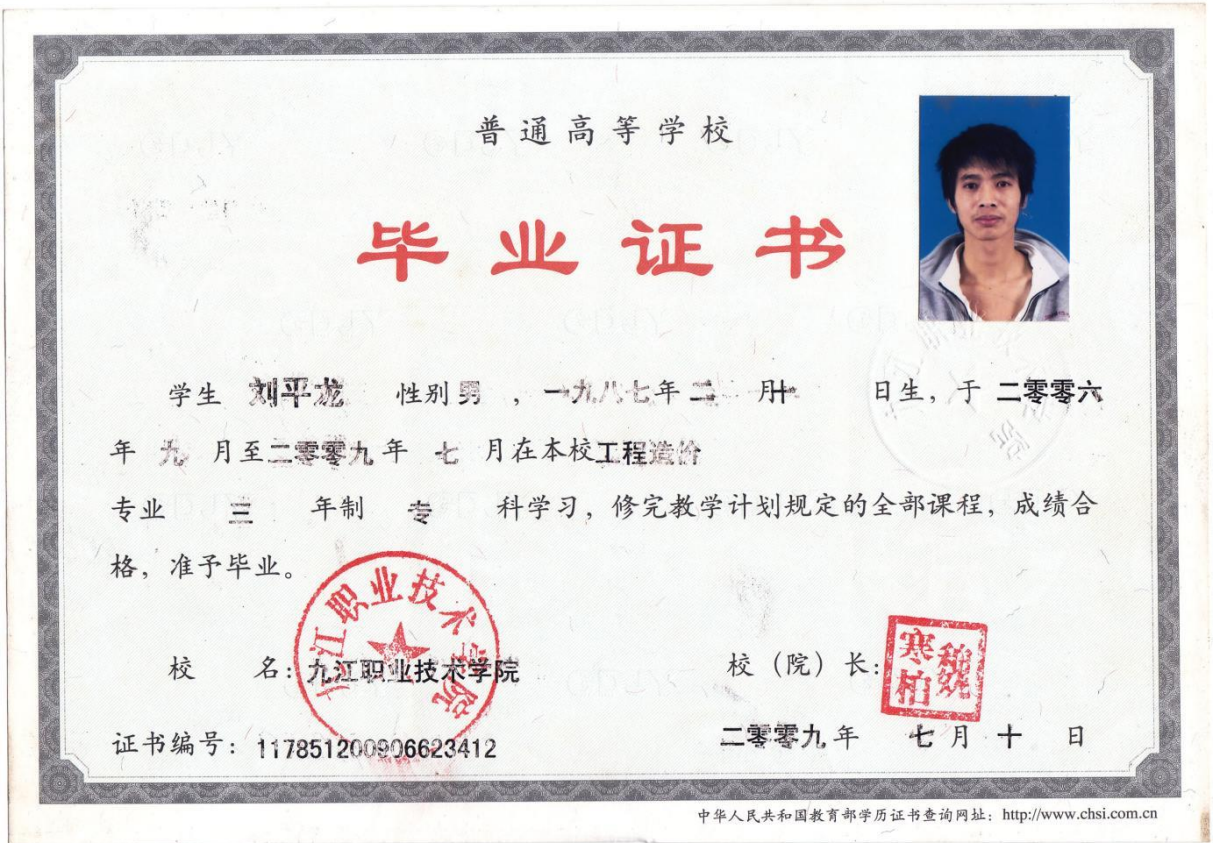 普通高等学校
毕业证书
学生 刘平龙 性别 男 ，一九八七年 二 月 日生，于 二零零六
年 九 月至二零零九年 七 月在本校工程造价
专业 三 年制 专 科学习，修完教学计划规定的全部课程，成绩合
格，准予毕业。
九江职业技术学院
校 名：九江职业技术学院
校（院）长：
寒柏
证书编号：117851200906623412
二零零九年 七月 十 日
中华人民共和国教育部学历证书查询网址：http://www.chsi.com.cn